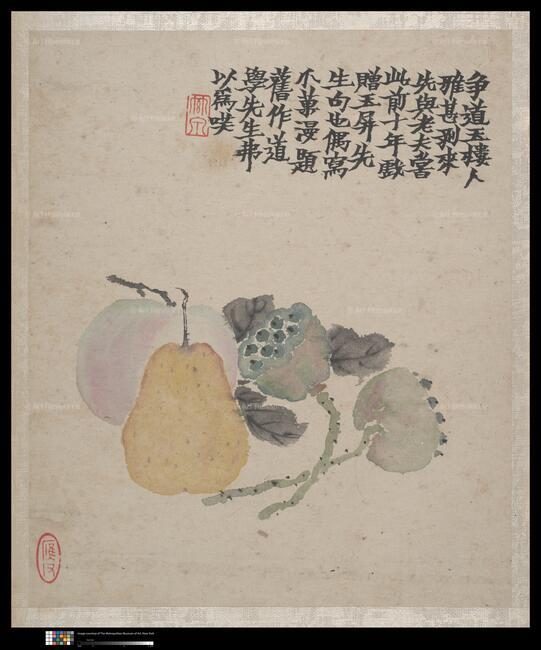 争道玉樓人
雅甚刪來
先與老夫嘗
此前十年戲
贈玉屏先
生句也偶寫
不菓漫題
舊作道
學先生弗
以為唉
Image courtesy of The Metropolitan Museum of Art, New York